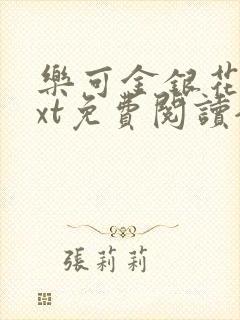 樂可金銀花
xt免費閱讀
張莉莉